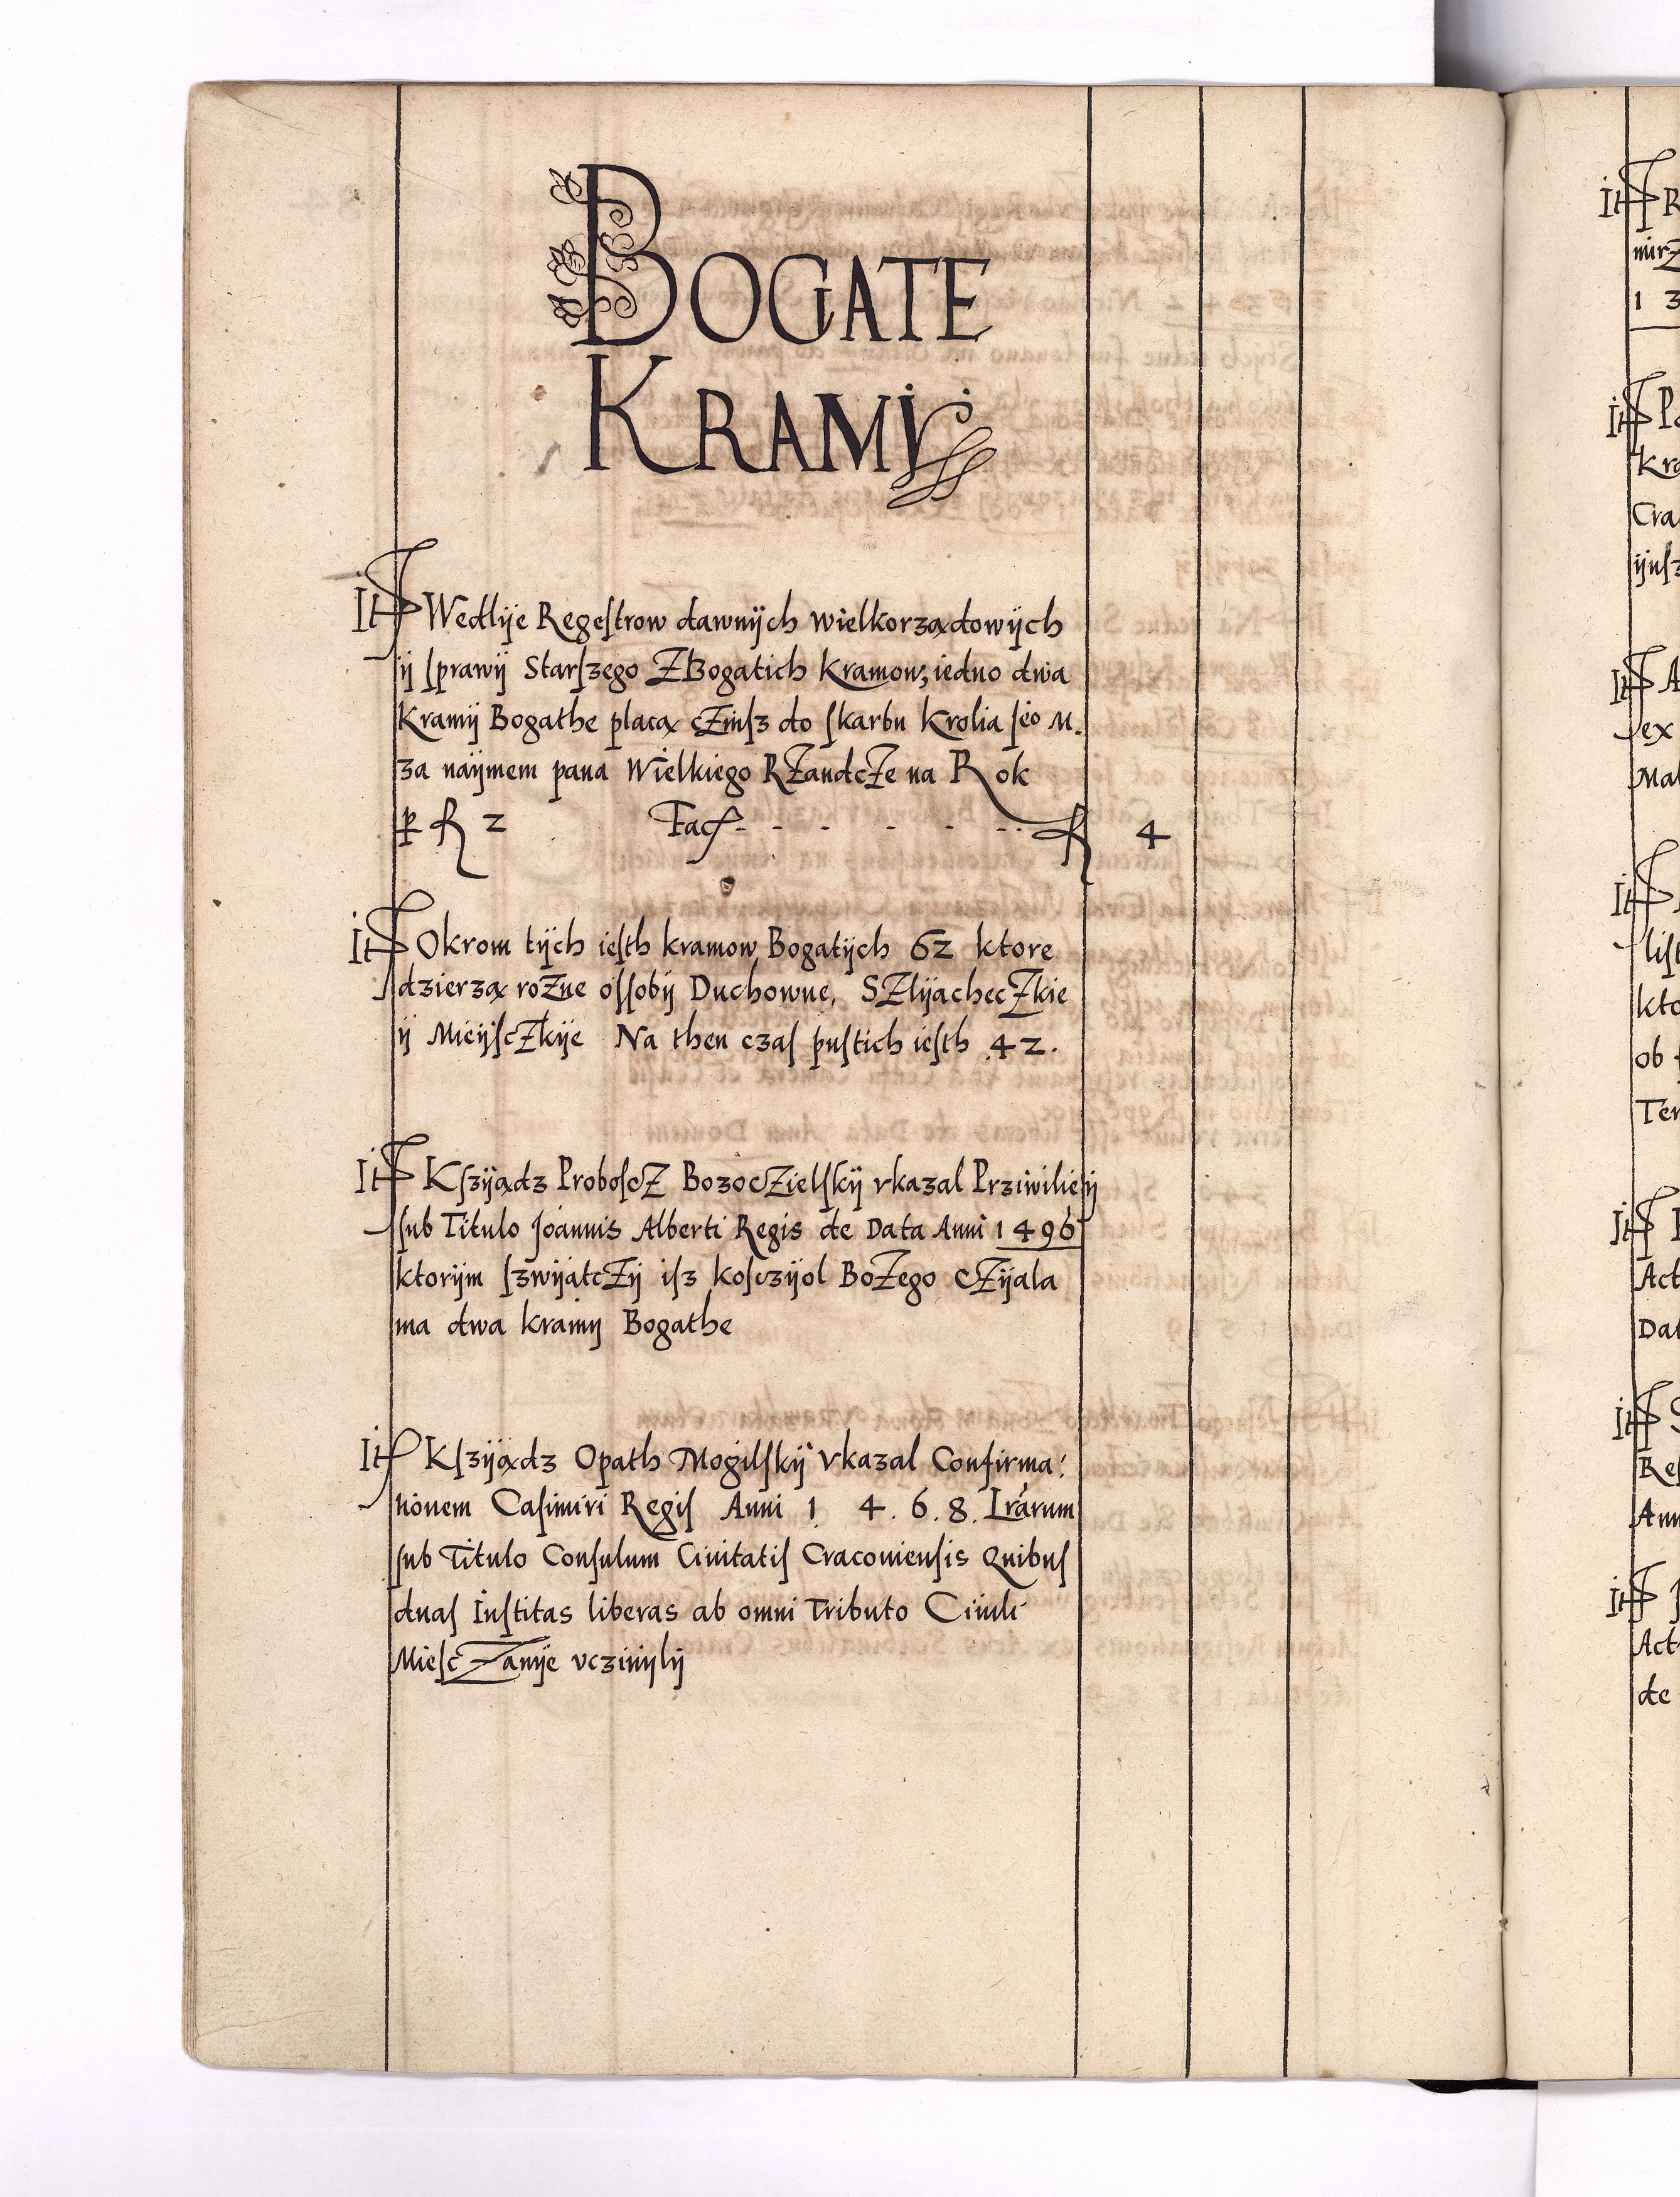 BOGATE
KRAMÿ
It Wedlÿe Regeſtrow dawnÿch wielkorządowÿch
ÿ ſprawÿ Starſzego Z Bogatich Kramow, iedno dwa
Kramÿ Bogathe placą cZinſz do ſkarbu Krolia ſeo M.
za naÿmem pana Wielkiego RZandcZe na Rok
2 Fac 4
It Okrom tÿch ieſth kramow Bogatÿch 62 ktore
dzierzą roZne oſſobÿ Duchowne, SZlÿachecZkie
ÿ MieÿſcZkÿe Na then czaſ puſtich ieſth .42.
It Kſzÿądz ProboſcZ BozocZielſkÿ vkazal Prziwilieÿ
ſub Titulo Joannis Alberti Regis de Data Anni 1496
ktorÿm ſzwÿatcZÿ iſz koſczÿol BoZego cZÿala
ma dwa kramÿ Bogathe
It Kſzÿądz Opath Mogilſkÿ vkazal Confirma:
tionem Caſimiri Regiſ Anni 1. 4. 6. 8. Lrarum
ſub Titulo Conſulum Ciuitatiſ Cracouienſis Quibuſ
duaſ Inſtitas liberas ab omni Tributo Ciuili
MieſcZanÿe vczinÿlÿ